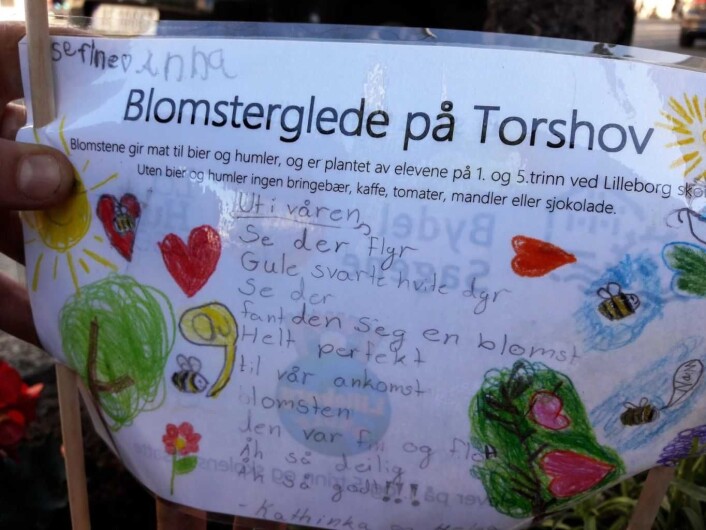 serine♡ anna
Blomsterglede på Torshov
Blomstene gir mat til bier og humler, og er plantet av elevene på 1. og 5.trinn ved Lilleborg skole
Uten bier og humler ingen bringebær, kaffe, tomater, mandler eller sjokolade.
Ut i våren
Se der flyr
Gule svarte hvite dyr
Se der
fant den seg en blomst
Helt perfekt
til vår ankomst
blomsten
den var fin og
Åh så deilig
Åh så godt!!!
- Kathinka og
Nam